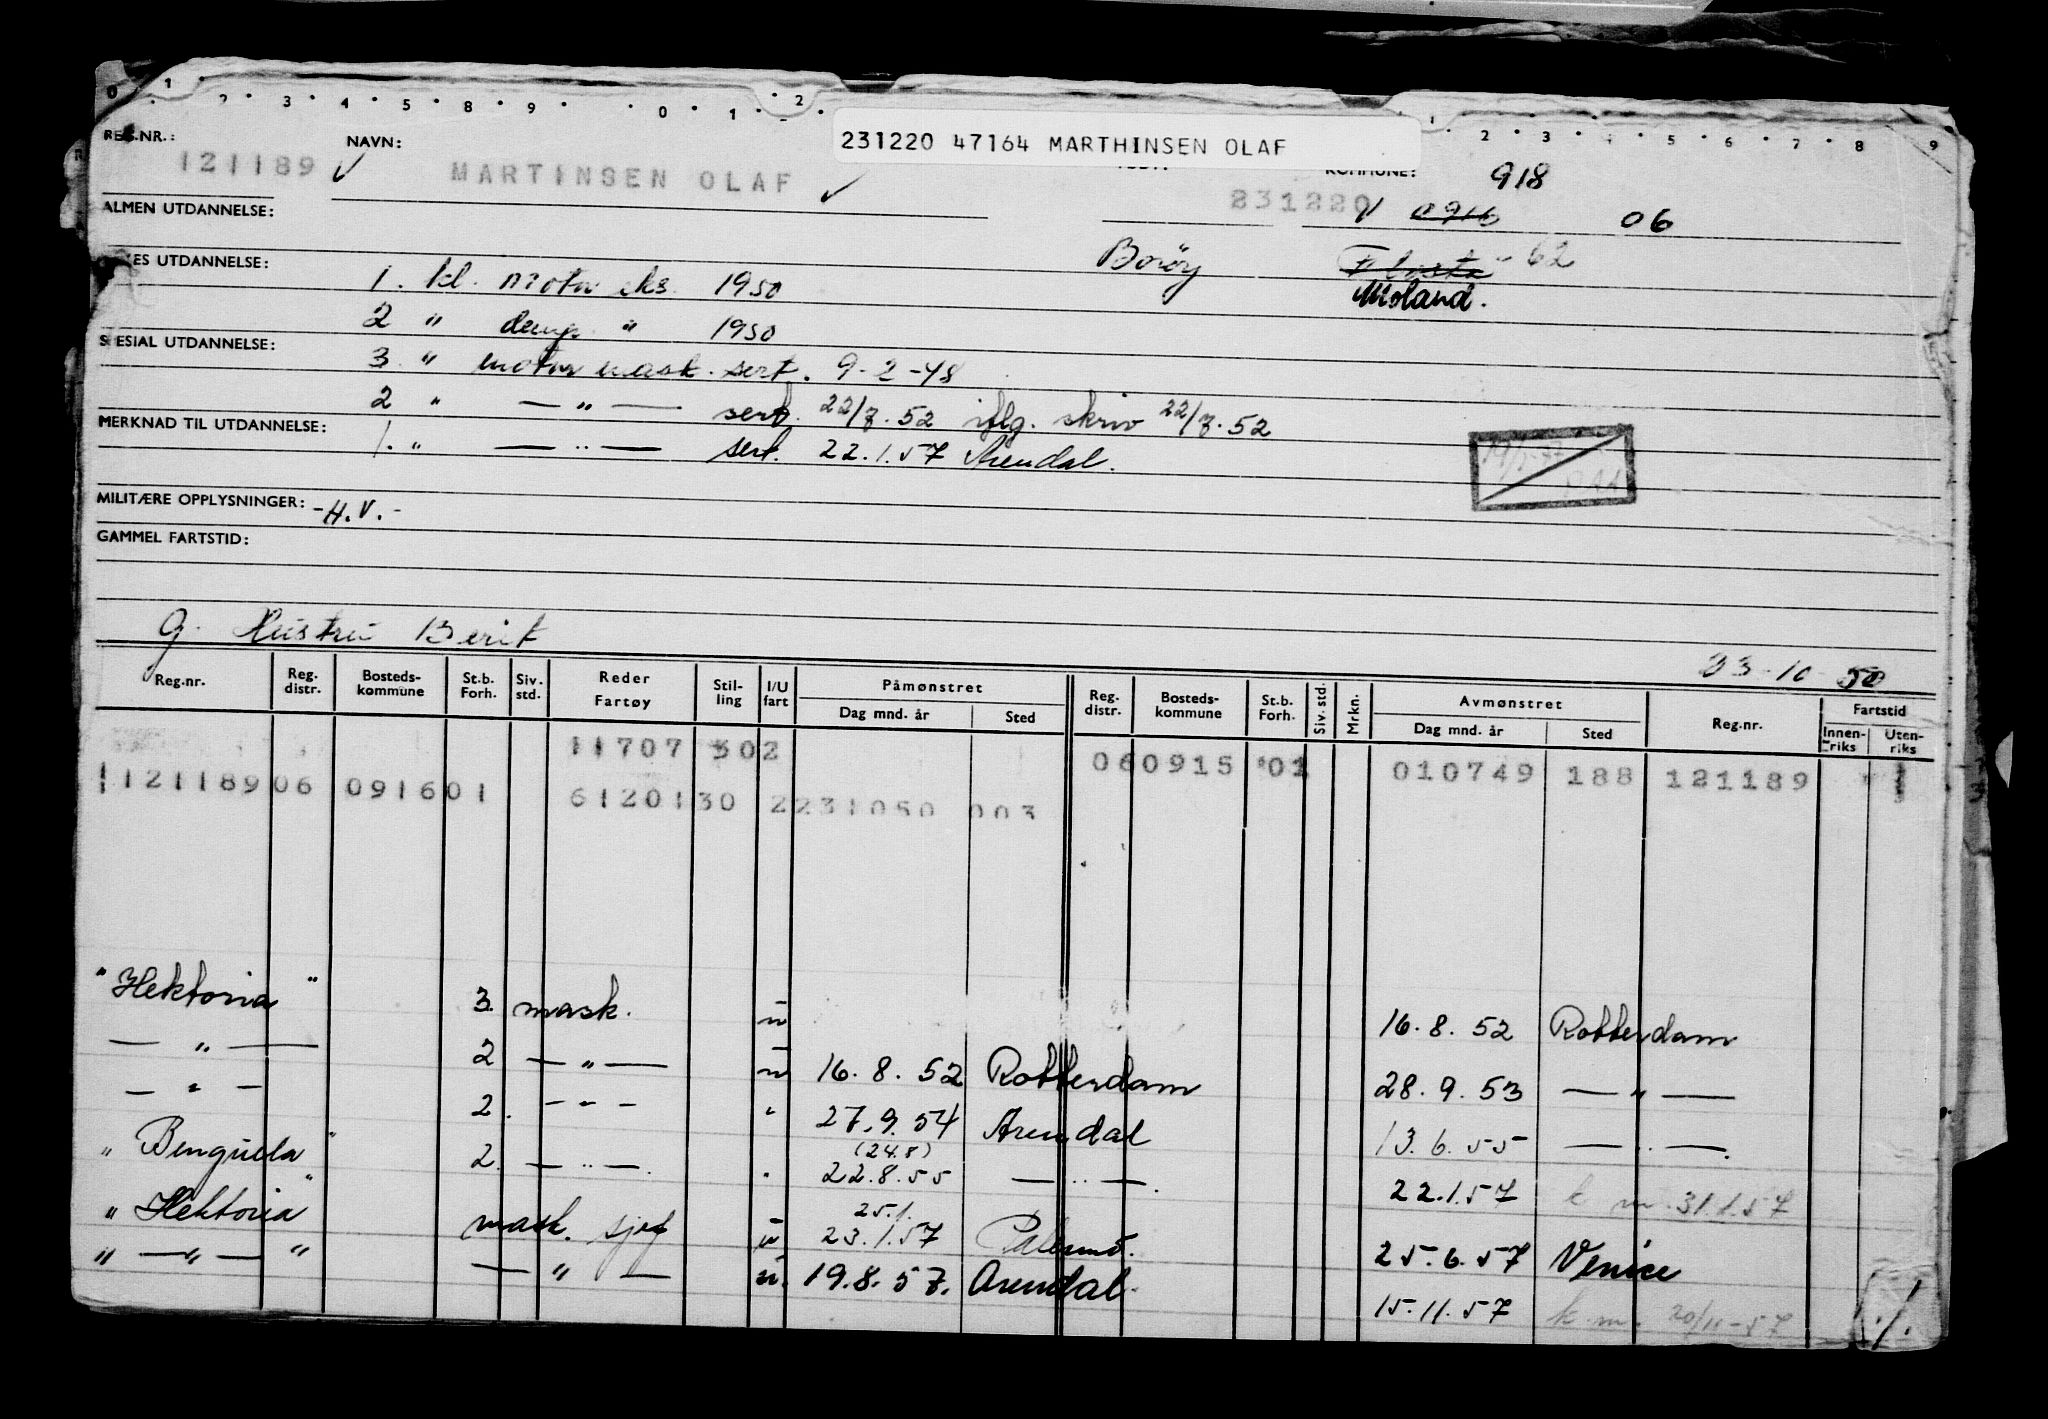 0 1 2 3 4 5 6 8 9 0 1 2 1 2 3 4 5 6 7 8 9
231220 47164 MARTHINSEN OLAF
REG.NR.: NAVN: KOMMUNE: 918
121189 MARTINSEN OLAF 231220 0916 06
ALMEN UTDANNELSE:
Borøy Flosta - 62
Moland.
UTDANNELSE: 1. kl. motor eks. 1950
2 " damp " 1950
SPESIAL UTDANNELSE:
3. " motor mask. sert. 9-2-48
2 " — " — sert. 22/7.52 iflg. skriv 22/7.52
MERKNAD TIL UTDANNELSE:
1. " — " — sert. 22.1.57 Arendal.
MILITÆRE OPPLYSNINGER: -H.V.-
GAMMEL FARTSTID:
g. Hustru Berit
23-10-50
Reg.nr. Reg. distr. Bosteds-kommune St.b. Forh. Siv. std. Reder Fartøy Stil-ling I/U fart Påmønstret Dag mnd. år Sted Reg. distr. Bosteds-kommune St.b. Forh. Siv. std. Mrkn. Avmønstret Dag mnd. år Sted Reg.nr. Fartstid Innen-riks Uten-riks
11707 302 060915 01 010749 188 121189
121189 06 0916 01 61201 30 2 231050 003
"Hektoria" 3. mask. u 16.8.52 Rotterdam
— " — 2 — " — u 16.8.52 Rotterdam 28.9.53 — " —
— " — 2. — " — " 27.9.54 Arendal 13.6.55 — " —.
(24.8)
"Benguela" 2. — " —. " 22.8.55 — " —. 22.1.57 k m. 31.1.57
25.1.
"Hektoria" mask. sjef u 23.1.57 Palermo. 25.6.57 Venice
" — " — " — " — u. 19.8.57. Arendal. 15.11.57 k m. 20/11-57
./.